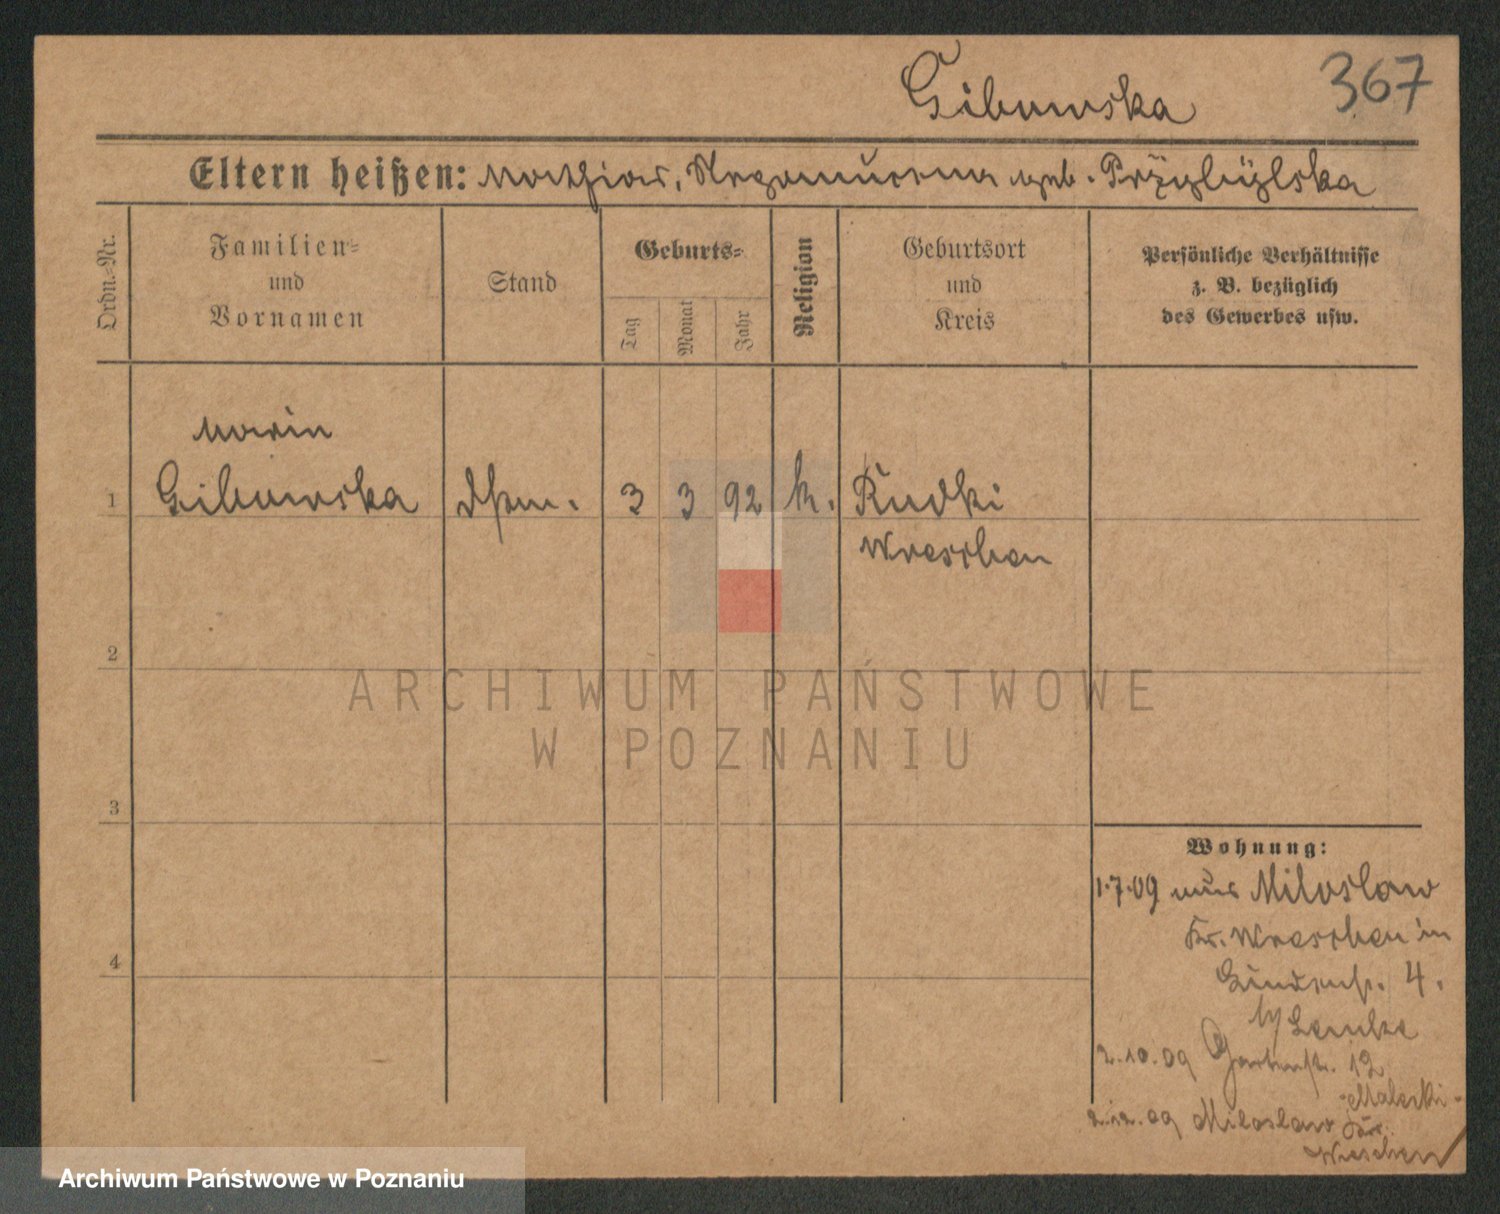 Gibowska
367
Eltern heißen: Mathias, Nepomucena geb. Przybylska
Ordn.-Nr.
Familien-
und
Vornamen
Stand
Geburts-
Tag
Monat
Jahr
Religion
Geburtsort
und
Kreis
Persönliche Verhältnisse
z. B. bezüglich
des Gewerbes usw.
Marie
1 Gibowska 3 3 92 k. Rudki
Wreschen
2
3
4
Wohnung:
1.7.09 aus Miloslaw
Kr. Wreschen in
Lindenstr. 4.
b/ Lemke
2.10.09 Gartenstr. 12
Maleski
2.12.09 Miloslaw Kr.
Wreschen
ARCHIWUM PAŃSTWOWE
W POZNANIU
Archiwum Państwowe w Poznaniu